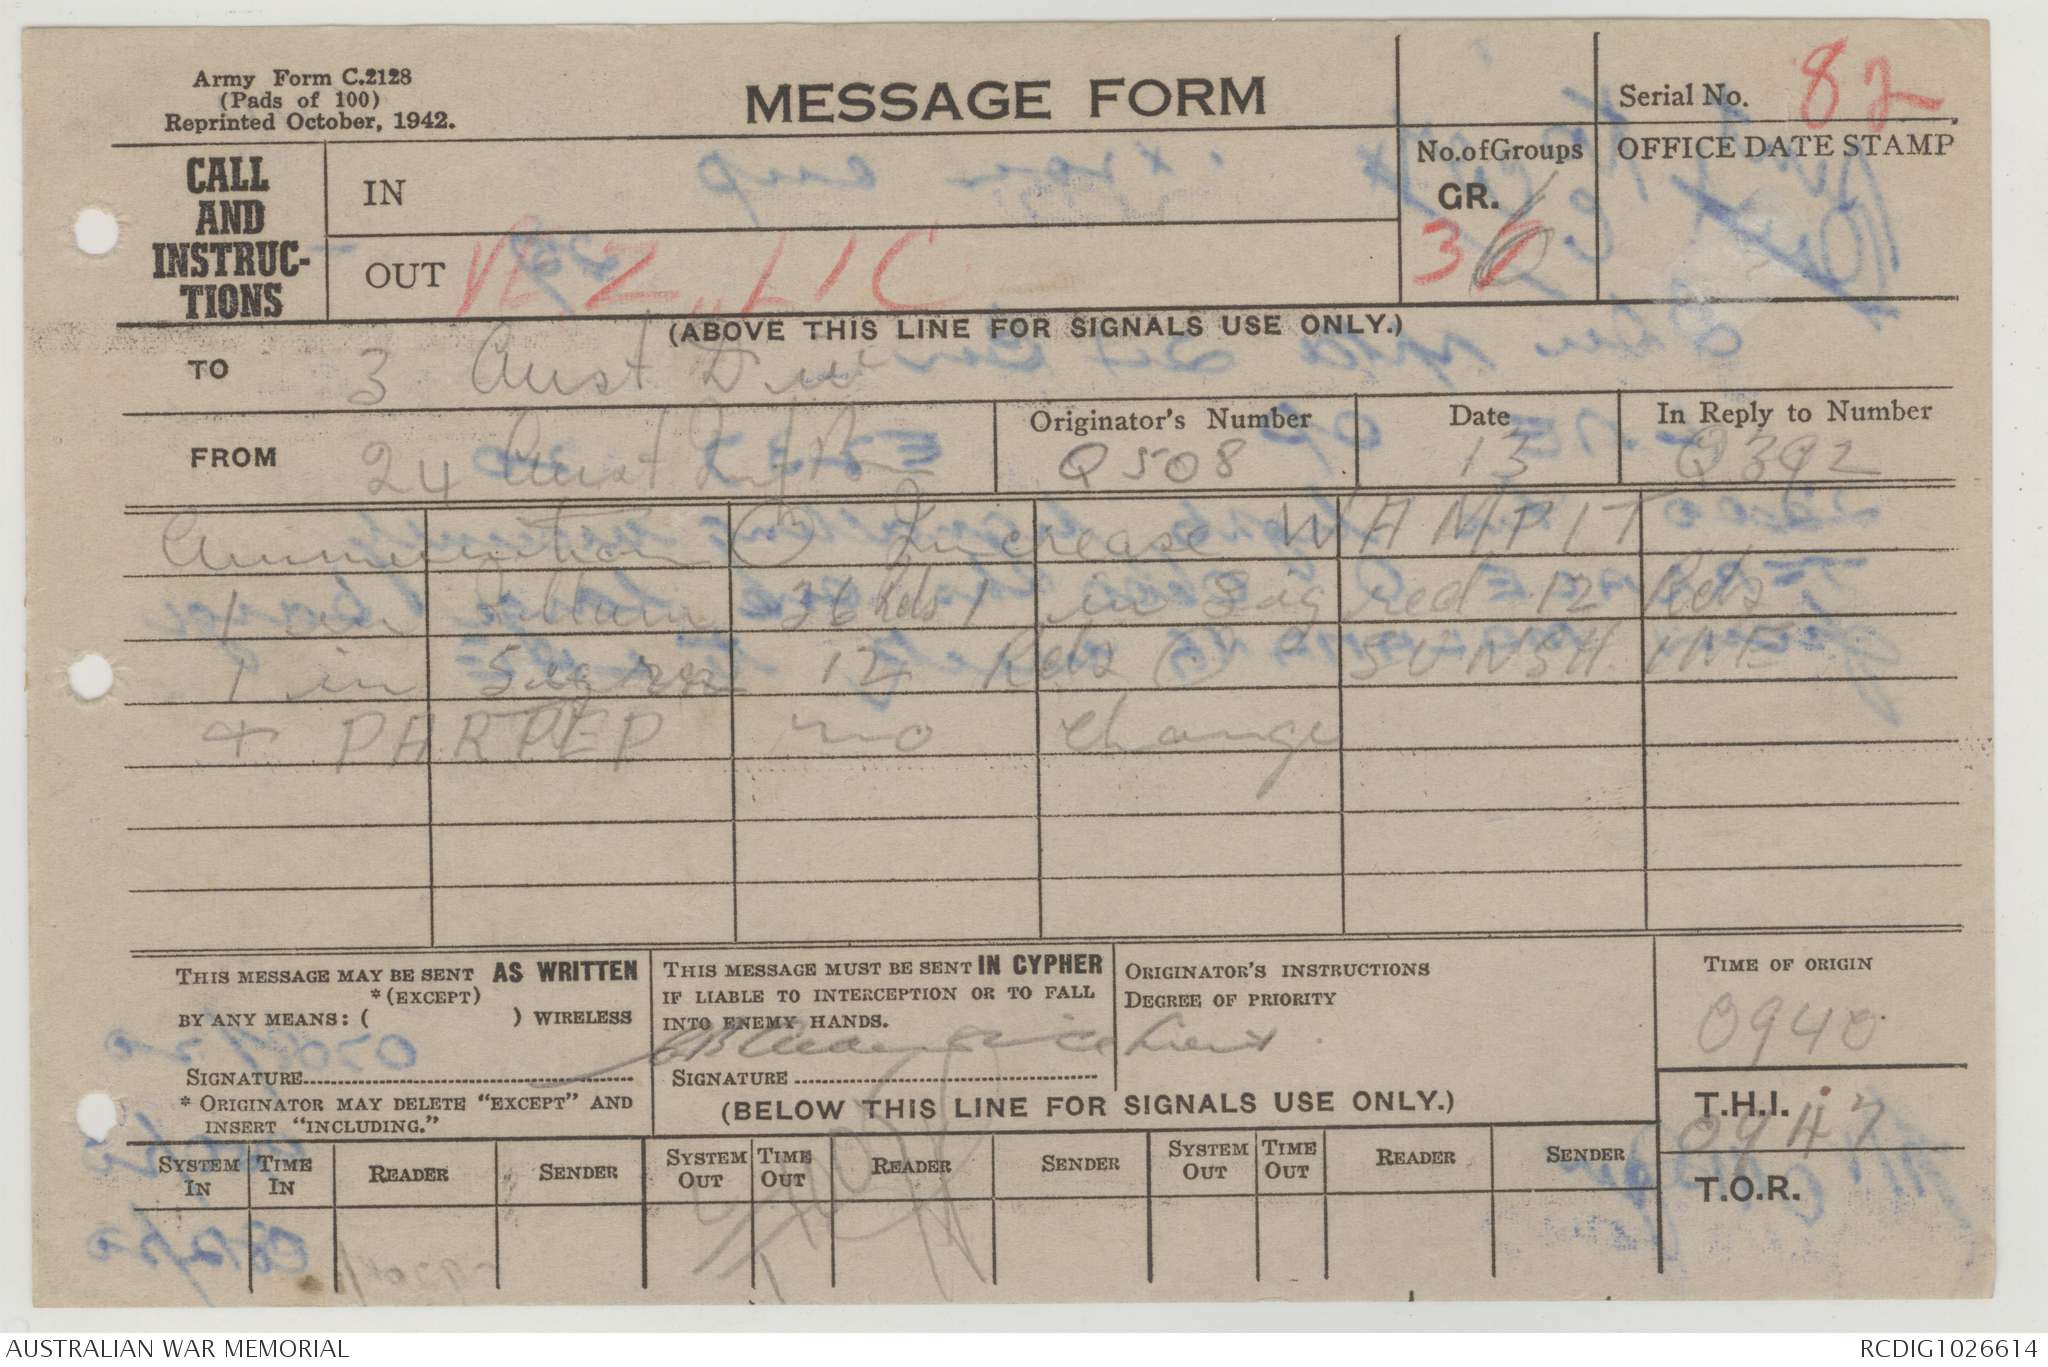 Army Form C.2128
(Pads of 100)
Reprinted October, 1942.
MESSAGE FORM
Serial No. 82
CALL
AND
INSTRUC-
TIONS
IN
No. of Groups
GR.
36
OFFICE DATE STAMP
OUT
(ABOVE THIS LINE FOR SIGNALS USE ONLY.)
TO 3 Aust Div
FROM 24 Aust Inf Bn
Originator's Number
Q508
Date
13
In Reply to Number
Q392
Ammunition Increase WAMPIT
1 in 36 Rds 1 in Sig red 12 Rds
1 in Sig 12 Rds SUNSHINE
+ PARPEP no change
THIS MESSAGE MAY BE SENT AS WRITTEN
*(EXCEPT)
BY ANY MEANS: ( ) WIRELESS
SIGNATURE
* ORIGINATOR MAY DELETE "EXCEPT" AND
INSERT "INCLUDING."
THIS MESSAGE MUST BE SENT IN CYPHER
IF LIABLE TO INTERCEPTION OR TO FALL
INTO ENEMY HANDS.
Lieut
SIGNATURE
ORIGINATOR'S INSTRUCTIONS
DEGREE OF PRIORITY
TIME OF ORIGIN
0940
(BELOW THIS LINE FOR SIGNALS USE ONLY.)
T.H.I.
0947
T.O.R.
SYSTEM IN TIME IN READER SENDER SYSTEM OUT TIME OUT READER SENDER SYSTEM OUT TIME OUT READER SENDER
AUSTRALIAN WAR MEMORIAL
RCDIG1026614